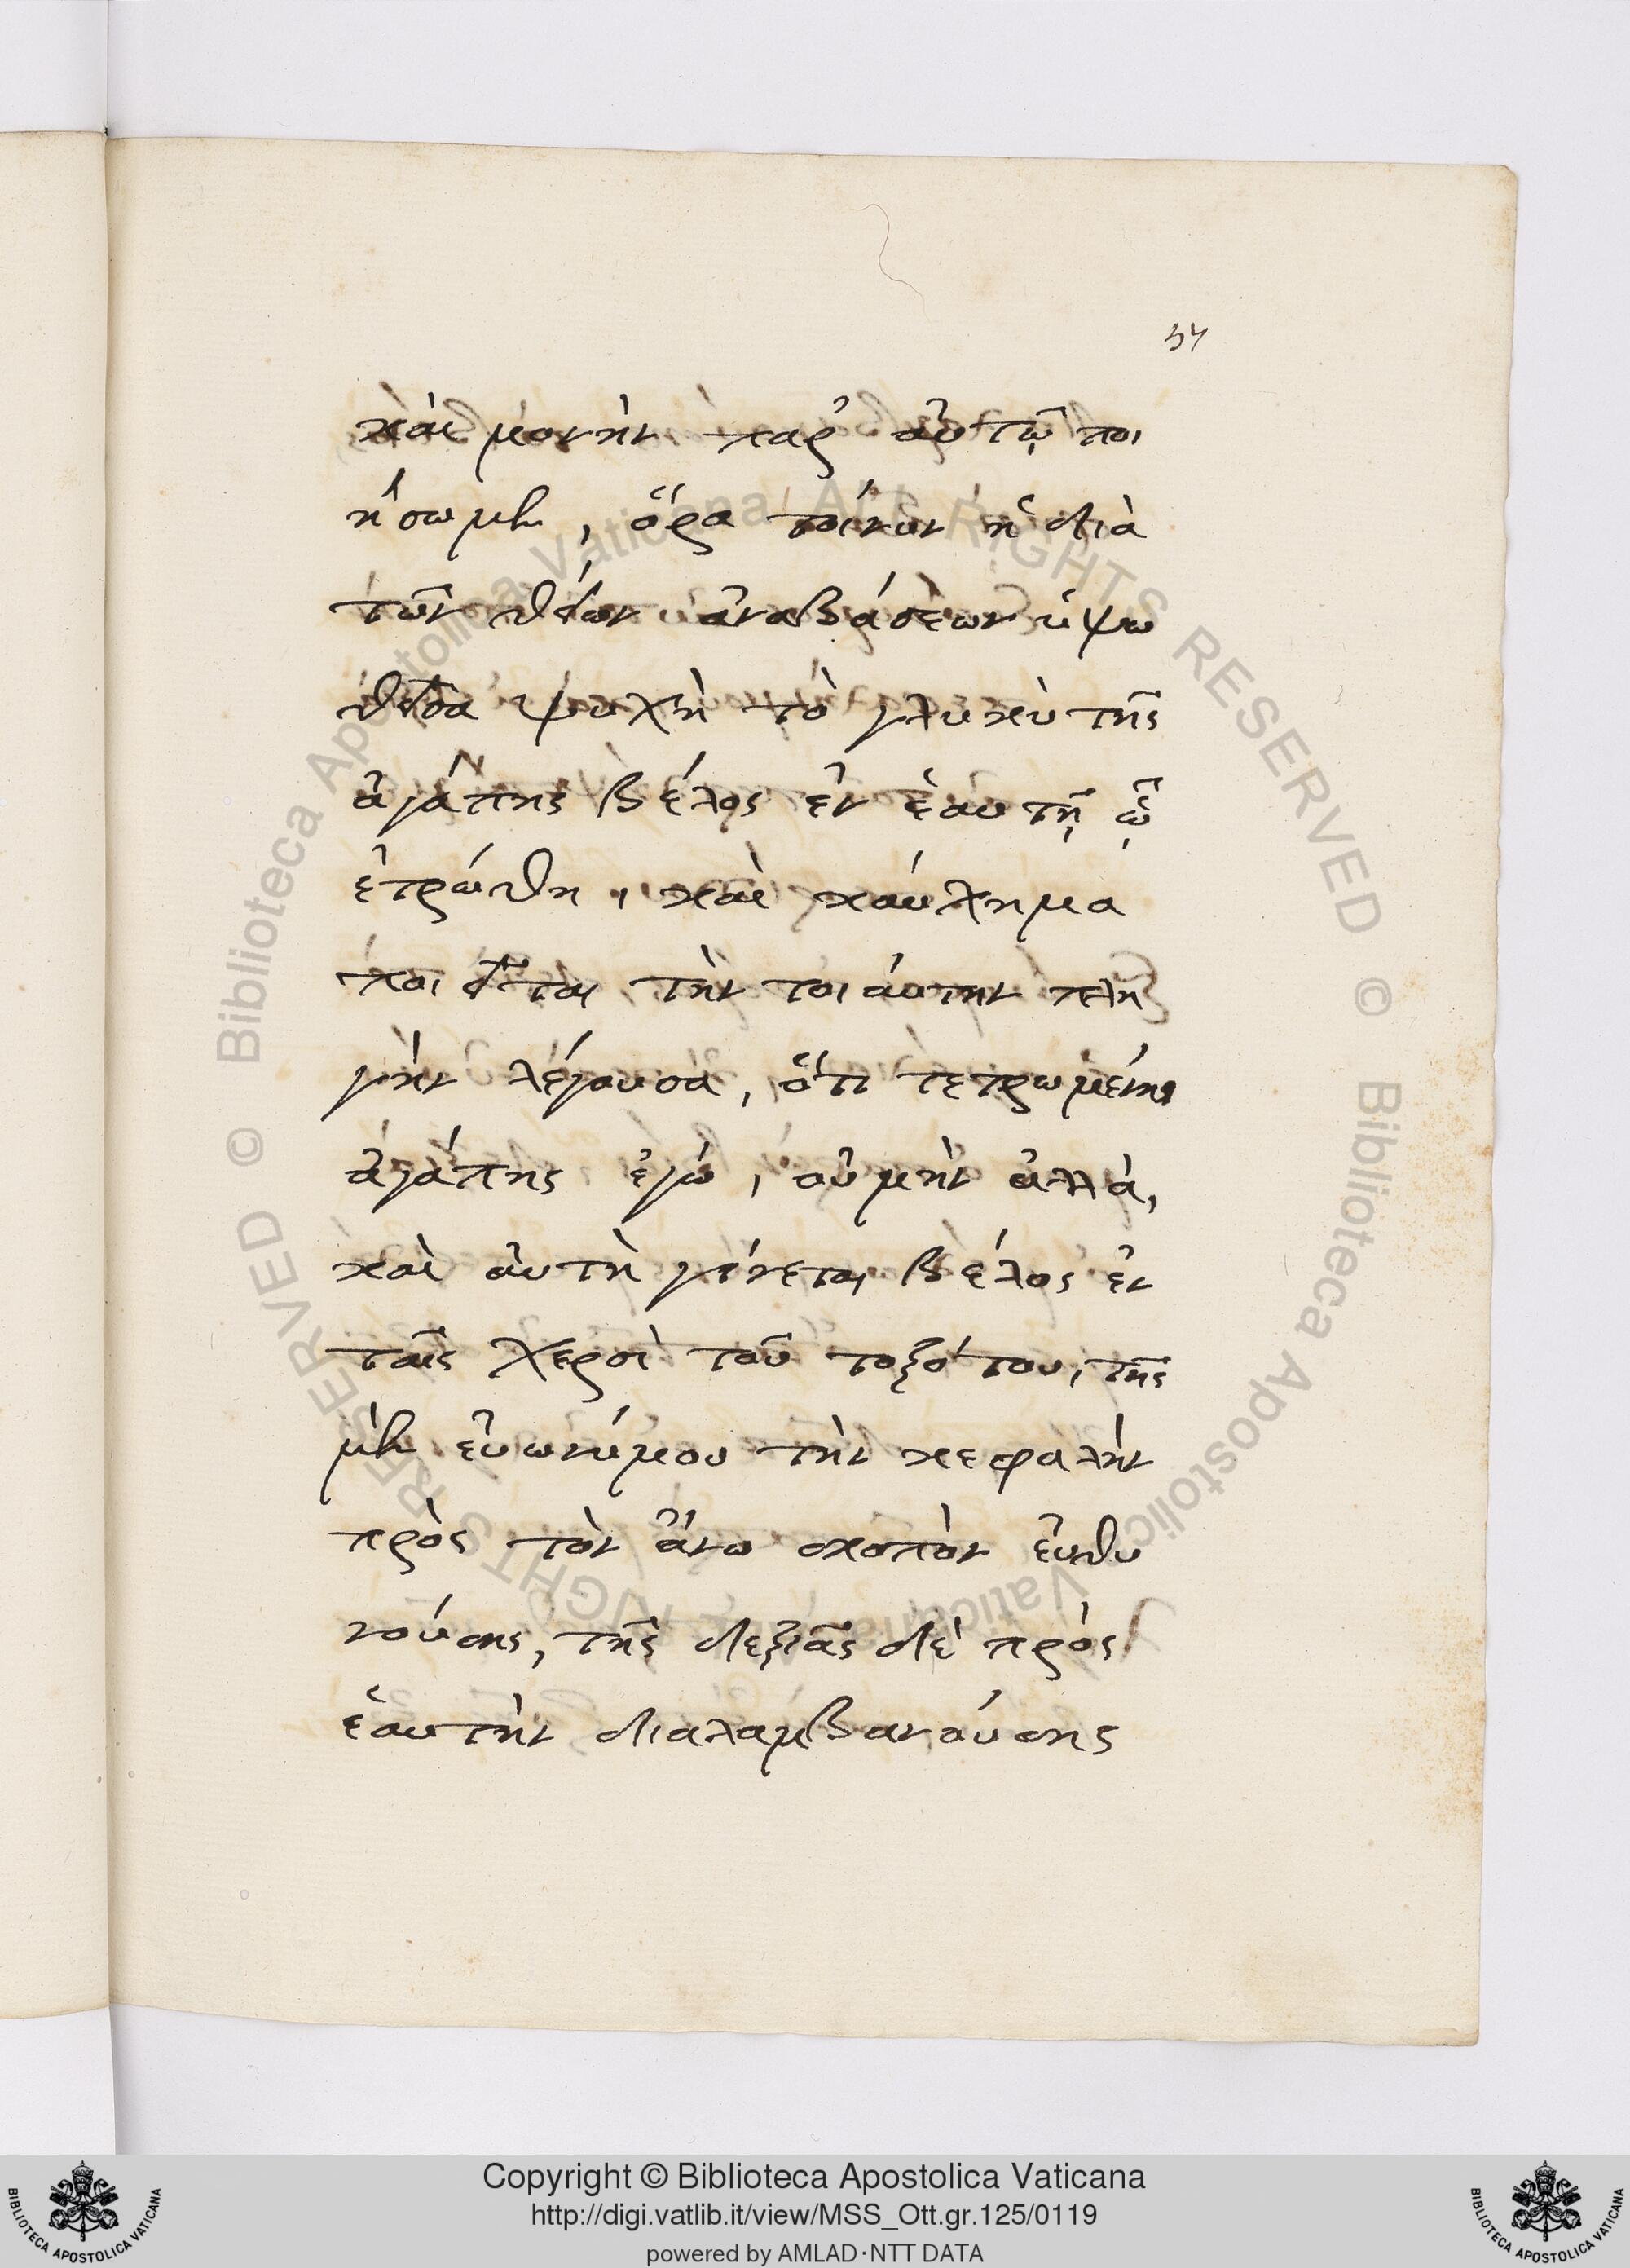 54
καὶ μονὴν παρ' αὐτῷ ποι
ήσωμεν, ὅρα τοίνυν ἡ διὰ
τῶν θείων ἀναβάσεων ὑψω
θεῖσα ψυχὴ τὸ γλυκὺ τῆς
ἀγάπης βέλος ἐν ἑαυτῇ ᾧ
ἐτρώθη, καὶ καύχημα
ποιεῖται τὴν τοιαύτην πλη
γὴν λέγουσα, ὅτι τετρωμένη
ἀγάπης ἐγώ, οὐ μὴν ἀλλὰ,
καὶ αὐτὴ γίνεται βέλος ἐν
ταῖς χερσὶ τοῦ τοξότου, τῆς
μὲν εὐωνύμου τὴν κεφαλὴν
πρὸς τὸν ἄνω σκοπὸν εὐθυ
νούσης, τῆς δεξιᾶς δὲ πρὸς
ἑαυτὴν διαλαμβανούσης
© Biblioteca Apostolica Vaticana ALL RIGHTS RESERVED © Biblioteca Apostolica Vaticana ALL RIGHTS RESERVED
Copyright © Biblioteca Apostolica Vaticana
http://digi.vatlib.it/view/MSS_Ott.gr.125/0119
powered by AMLAD·NTT DATA
BIBLIOTECA APOSTOLICA VATICANA
BIBLIOTECA APOSTOLICA VATICANA